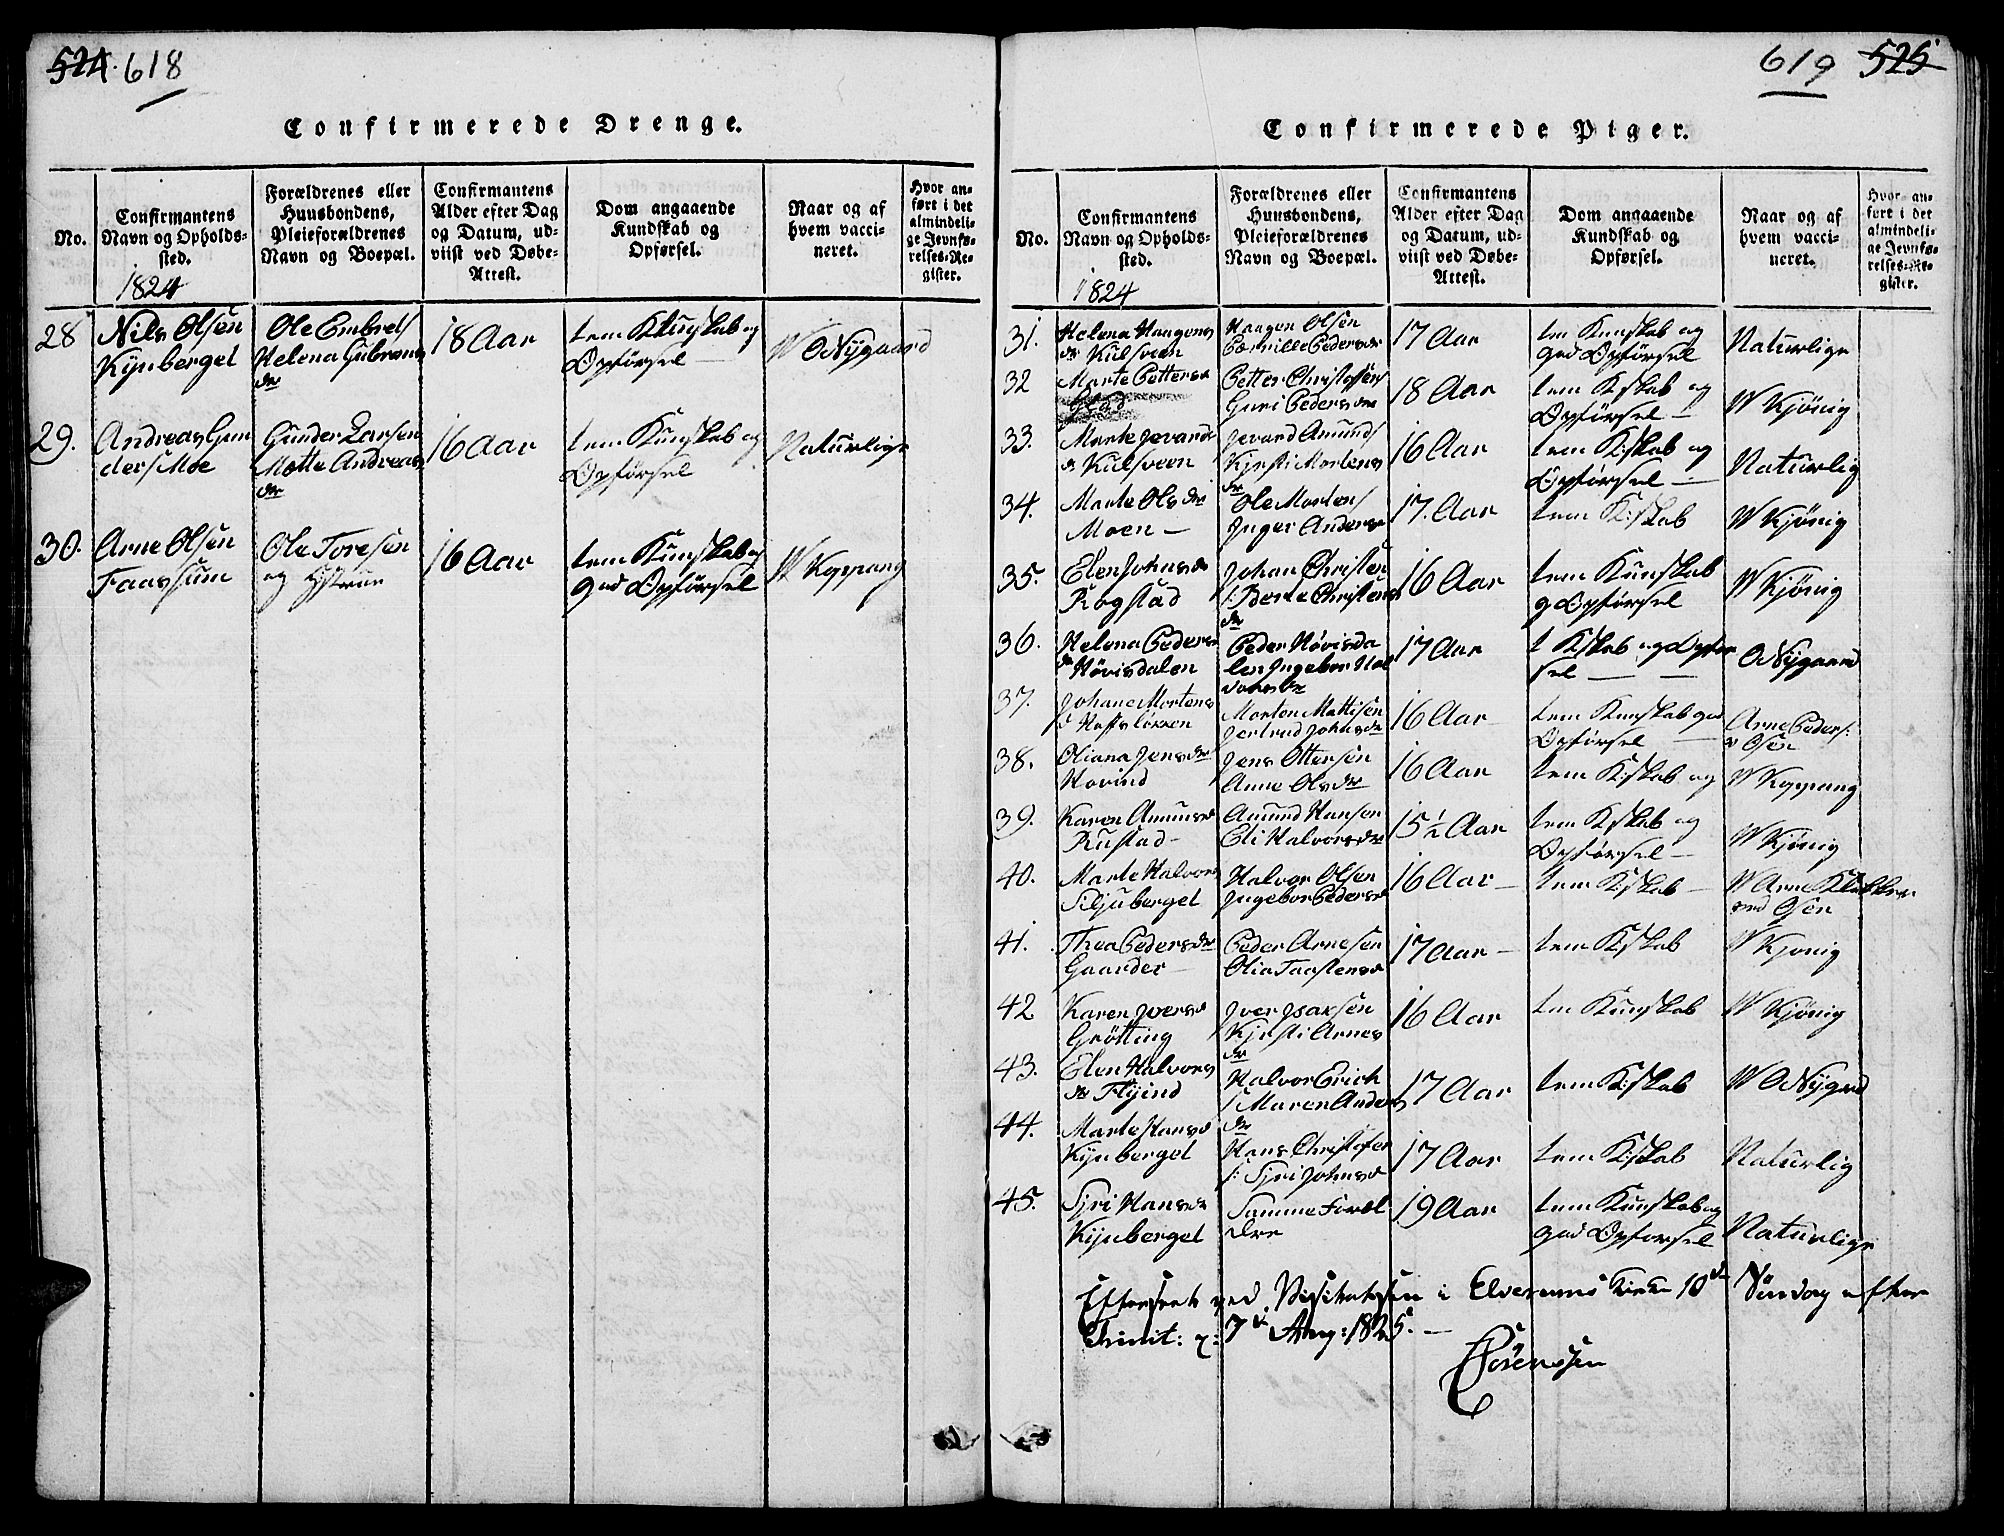 524. 618
Confirmerede Drenge.
No.
Confirmantens
Navn og Opholds-
sted.
Forældrenes eller
Huusbondens,
Pleieforældrenes
Navn og Boepæl.
Confirmantens
Alder efter Dag
og Datum, ud-
viist ved Døbe-
Attest.
Dom angaaende
Kundskab og
Opførsel.
Naar og af
hvem vacci-
neret.
Hvor an-
ført i det
almindeli-
ge Jevnfø-
relses-Re-
gister.
1824
28 Nils Olsen
Kynberget
Ole Embrets
Helena Gubrans
dr
18 Aar
tem Kundskab og
Opførsel
W ONygaard
29. Andreas Gun
ders Moe
Gunder Larsen
Mette Andreas
dr
16 Aar
tem Kunskab og
Opførsel
Naturlige
30. Arne Olsen
Faassum
Ole Toresen
og
16 Aar
tem Kunskab og
god Opførsel
W Koppang
619 525
Confirmerede Piger.
No.
Confirmantens
Navn og Opholds-
sted.
Forældrenes eller
Huusbondens,
Pleieforældrenes
Navn og Boepæl.
Confirmantens
Alder efter Dag
og Datum, ud-
viist ved Døbe-
Attest.
Dom angaaende
Kundskab og
Opførsel.
Naar og af
hvem vacci-
neret.
Hvor an-
ført i det
almindeli-
ge Jevnfø-
relses-Re-
gister.
1824
31. Helena Haagens
dr Kulsveen
Haagen Olsen
Pernille Pedersdr
17 Aar
tem Kunskab og
god Opførsel
Naturlige
32 Marte Petters
Petter Christoffers
Guri Pedersdr
18 Aar
tem Kskab og
Opførsel —
W Kjønig
33. Marte Jevards
dr Kulsveen
Jevard Amunds
Kjersti Mortens
dr
16 Aar
tem K:skab og
Opførsel —
Naturlig
34. Marte Olsdr
Moen —
Ole Mortens
Inger Anders
17. Aar
tem K:skab
W Kjønig
35. Elen Johnsdr
Rogstad
Johan Christen
s: Berte Christens
dr
16 Aar
tem Kunskab
g Opførsel
W Kjønig
36. Helena Peders
dr Hövisdalen
Peder Hövisda
len Ingebor Hal
vorsdr
17 Aar
t Kskab og Opfør
sel — —
ONygaard
37. Johane Mortens
Morten Mattisen
Jertrud Johnsdr
16 Aar
tem Kunskab god
Opførsel —
Arne Peders:
v Osen
38. Oliana Jensdr
Hovind
Jens Ottersen
Anne Olsdr
16 Aar
tem K:skab og
W Koppang
39. Karen Amunsd
Rustad —
Amund Hansen
Eli Halvorsdr
15 1/2 Aar
tem K:skab og
Opførsel —
W Kjønig
40. Marte Halvors
Siljuberget
Halvor Olsen
Ingebor Pedersd
16 Aar —
tem K:skab —
W Arne
ved Osen
41. Thea Pedersdr
Gaarder —
Peder Arnesen
Olia Taastensd
17 Aar —
tem K:skab
W Kjonig
42 Karen Iversd
Grötting
Iver Isaksen
Kjersti Arnes
dr
16 Aar
tem Kunskab
W Kjønig
43. Elen Halvors
dr Flyind
Halvor Erich
s Maren Anders
dr
17 Aar
tem K:skab
W ONygard
44. Marte Hansd
Kynberget
Hans Christofer
s: Sjri Johnsd
17 Aar
tem K:skab
Naturlig
45. Sjri Hansdr
Kynberget
Samme Foræl
dre
19 Aar
tem Kunskab og
god Opforsel
Naturlige
Efterseet ved Visitatsen i Elverums Kirke 10de Søndag efter
Trinit: 7de Aug: 1825. —
Sörenssen